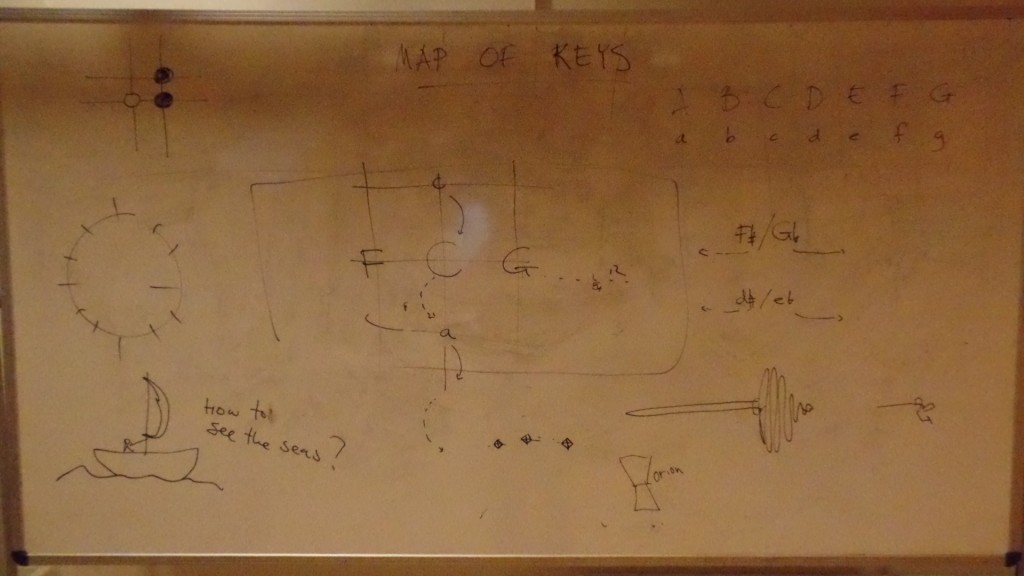 MAP OF KEYS
A B C D E F G
a b c d e f g
F C G
a
F#/Gb
d#/eb
How to
see the seas?
orion